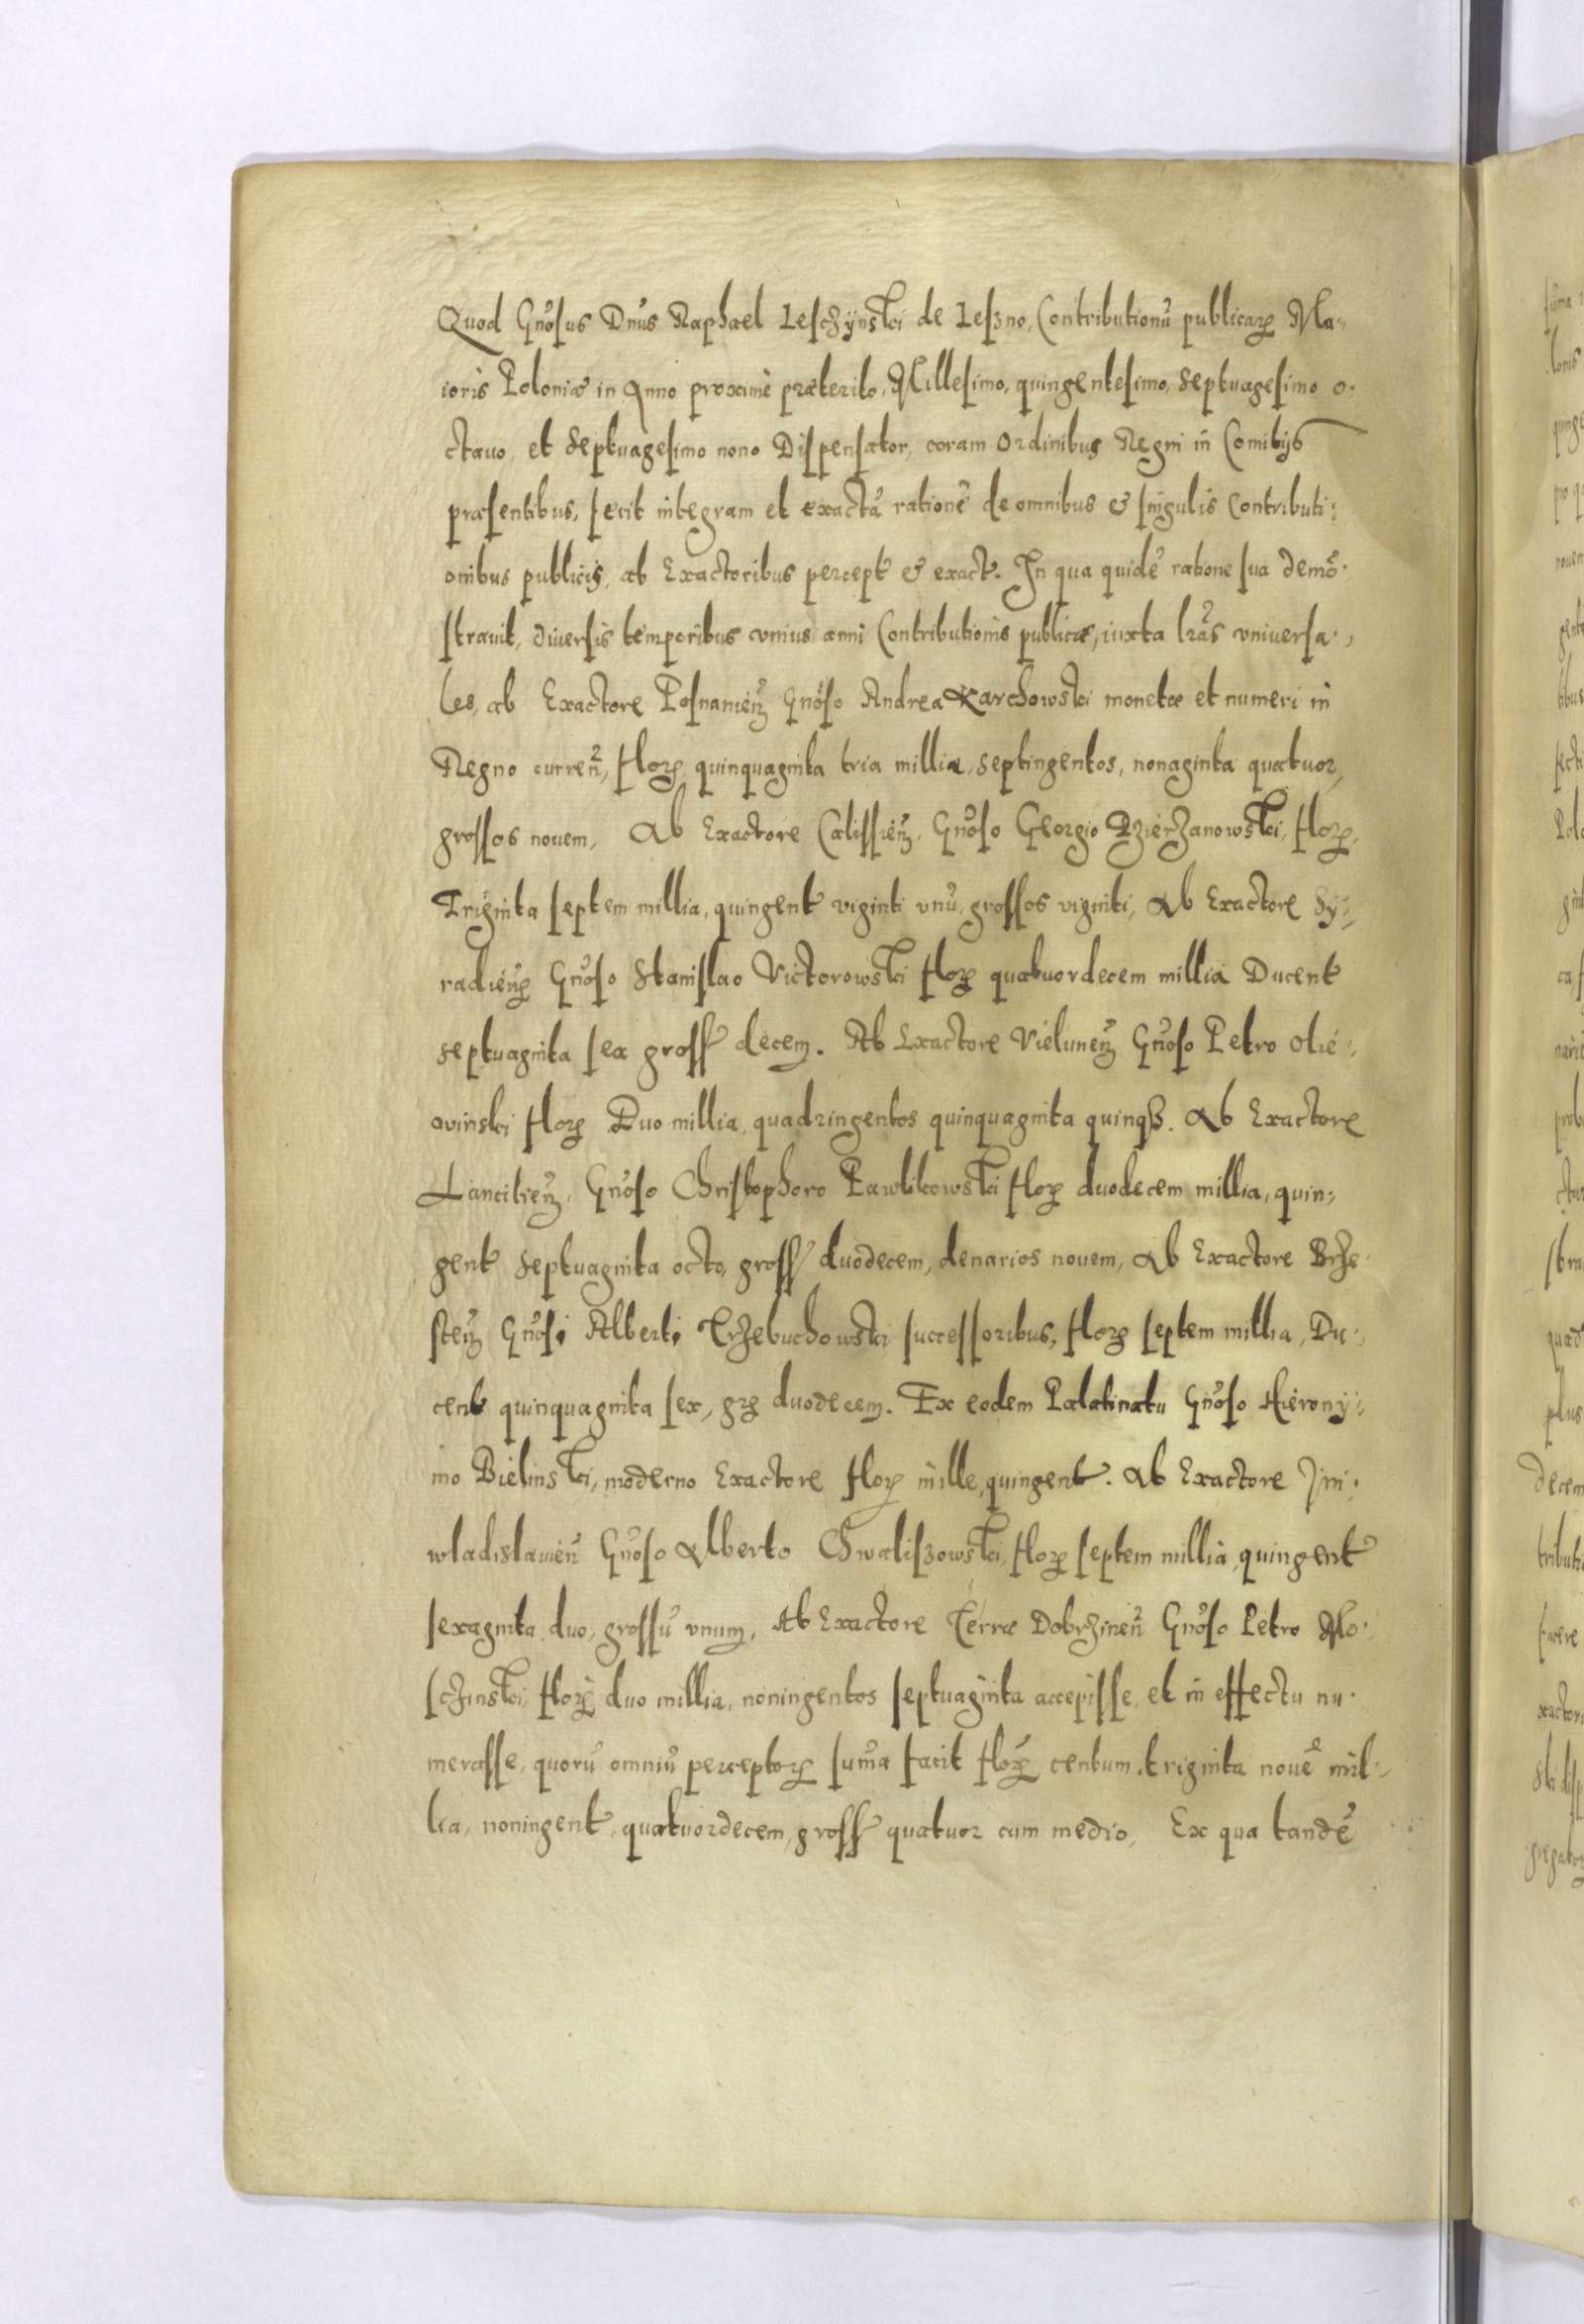 Quod Gnōsus Dnūs Raphael Leschÿnski de Leszno, Contributionū publicarꝝ Ma-
ioris Poloniæ in Anno proximè præterito, Millesimo, quingentesimo, septuagesimo o-
ctauo, et septuagesimo nono Dispensator, coram Ordinibus Regni in Comitijs
præsentibus, fecit integram et exactā rationē de omnibus & singulis Contributi-
onibus publicis, ab Exactoribus percept & exact. In qua quidē ratione sua demō-
strauit, diuersis temporibus vnius anni Contributionis publicæ, iuxta lrās vniuersa-
les, ab Exactore Posnanień Gnōso Andrea Karchowski monetæ et numeri in
Regno curreñ, florꝝ quinquaginta tria millia, septingentos, nonaginta quatuor,
grossos nouem, Ab Exactore Calissień, Gnōso Georgio Dzierzanowski, florꝝ,
Triginta septem millia, quingent viginti vnū, grossos viginti, Ab Exactore Sy-
radień Gnōso Stanislao Victorowski florꝝ quatuordecem millia Ducent
septuaginta sex gross decem. Ab Exactore Vieluneń Gnōso Petro Olie-
winski florꝝ Duo millia, quadringentos quinquaginta quinqꝫ. Ab Exactore
Lancitień, Gnōso Christophoro Pawlikowski florꝝ duodecem millia, quin-
gent septuaginta octo, gross duodecem, denarios nouem, Ab Exactore Brze-
steń Gnōsi Alberti Trzebuchowski successoribus, florꝝ septem millia, Du-
cent quinquaginta sex, grꝝ duodecem. Ex eodem Palatinatu Gnōso Hierony-
mo Bielinski, moderno Exactore florꝝ mille, quingent. Ab Exactore Jni-
wladislauień Gnōso Alberto Chwaliszowski, florꝝ septem millia, quingent
sexaginta duo, grossū vnum, Ab Exactore Terræ Dobrzineń Gnōso Petro Mo-
schinski, florꝝ duo millia, noningentos septuaginta accepisse, et in effectu nu-
merasse, quorū omniū perceptorꝝ sum̄a facit florꝝ centum triginta nouē mil-
lia, noningent, quatuordecem, gross quatuor cum medio, Ex qua tandē